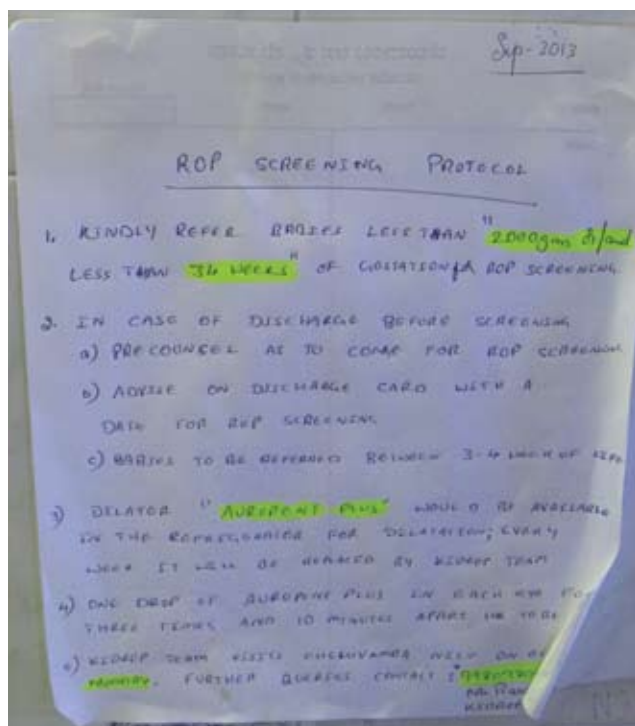 Sep-2013
ROP SCREENING PROTOCOL
1. KINDLY REFER BABIES LESS THAN "2000gms or/and
LESS THAN 34 WEEKS" OF GESTATION for ROP SCREENING
2. IN CASE OF DISCHARGE BEFORE SCREENING
a) PRECOUNSEL AS TO COME FOR ROP SCREENING
b) ADVISE ON DISCHARGE CARD WITH A
DATE FOR ROP SCREENING
c) BABIES TO BE REFERRED BETWEEN 3-4 WEEK OF LIFE
3) DILATOR "AUROPENT PLUS" WOULD BE AVAILABLE
IN THE REFRIGERATOR FOR DILATATION; EVERY
WEEK IT WILL BE REPLACED BY KIDROP TEAM
4) ONE DROP OF PLUS IN EACH EYE FOR
THREE TIMES AND 10 MINUTES APART
5) KIDROP TEAM VISITS CHELUVAMBA ON
FURTHER QUERIES CONTACT
KIDROP